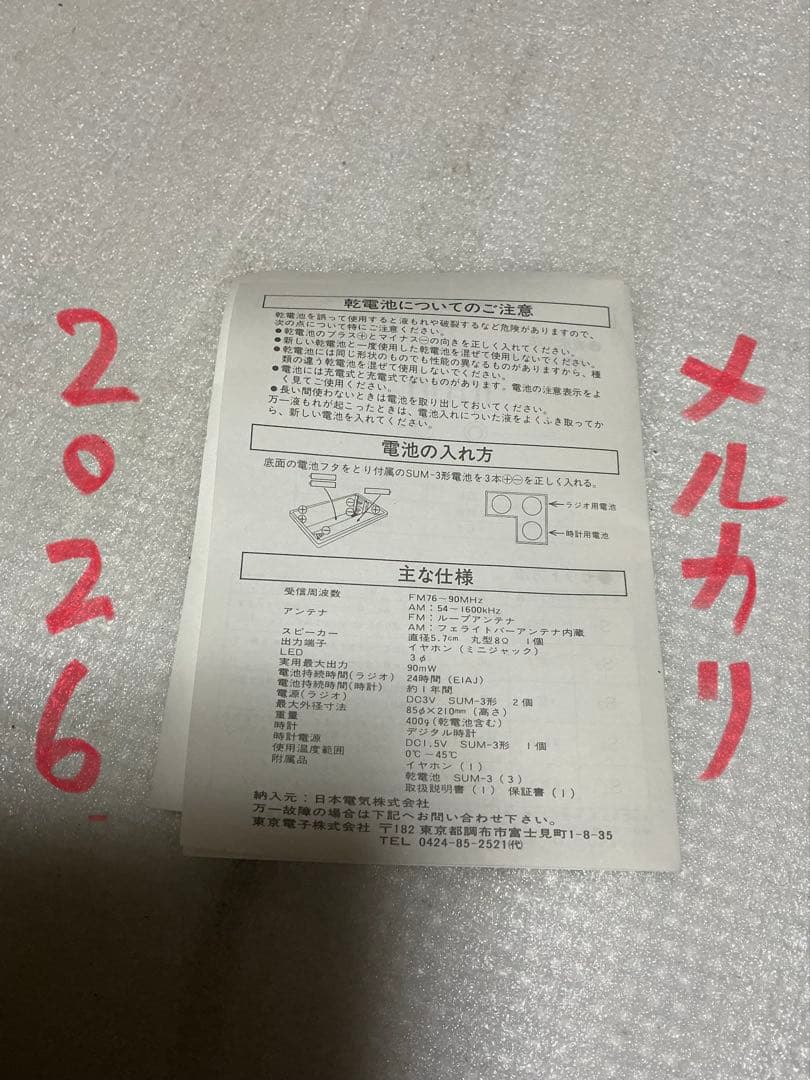 2026
メルカリ
乾電池についてのご注意
乾電池を誤って使用すると液もれや破裂するなど危険がありますので、
次の点について特にご注意ください。
●乾電池のプラス⊕とマイナス⊖の向きを正しく入れてください。
●新しい乾電池と一度使用した乾電池を混ぜて使用しないでください。
●乾電池には同じ形状のものでも性能の異なるものがありますから、種
類の違う乾電池を混ぜて使用しないでください。
●電池には充電式と充電式でないものがあります。電池の注意表示をよ
く見てご使用ください。
●長い間使わないときは電池を取り出しておいてください。
万一液もれが起こったときは、電池入れについた液をよくふき取ってか
ら、新しい電池を入れてください。
電池の入れ方
底面の電池フタをとり付属のSUM-3形電池を3本⊕⊖を正しく入れる。
ラジオ用電池
時計用電池
主な仕様
受信周波数 FM76~90MHz
AM:54~1600kHz
アンテナ FM:ループアンテナ
AM:フェライトバーアンテナ内蔵
スピーカー 直径5.7cm 丸型8Ω 1個
出力端子 イヤホン(ミニジャック)
LED 3φ
実用最大出力 90mW
電池持続時間(ラジオ) 24時間(EIAJ)
電池持続時間(時計) 約1年間
電源(ラジオ) DC3V SUM-3形 2個
最大外径寸法 85φ×210mm(高さ)
重量 400g(乾電池含む)
時計 デジタル時計
時計電源 DC1.5V SUM-3形 1個
使用温度範囲 0℃~45℃
附属品 イヤホン(1)
乾電池 SUM-3(3)
取扱説明書(1) 保証書(1)
納入元:日本電気株式会社
万一故障の場合は下記へお問い合わせ下さい。
東京電子株式会社 〒182 東京都調布市富士見町1-8-35
TEL 0424-85-2521㈹